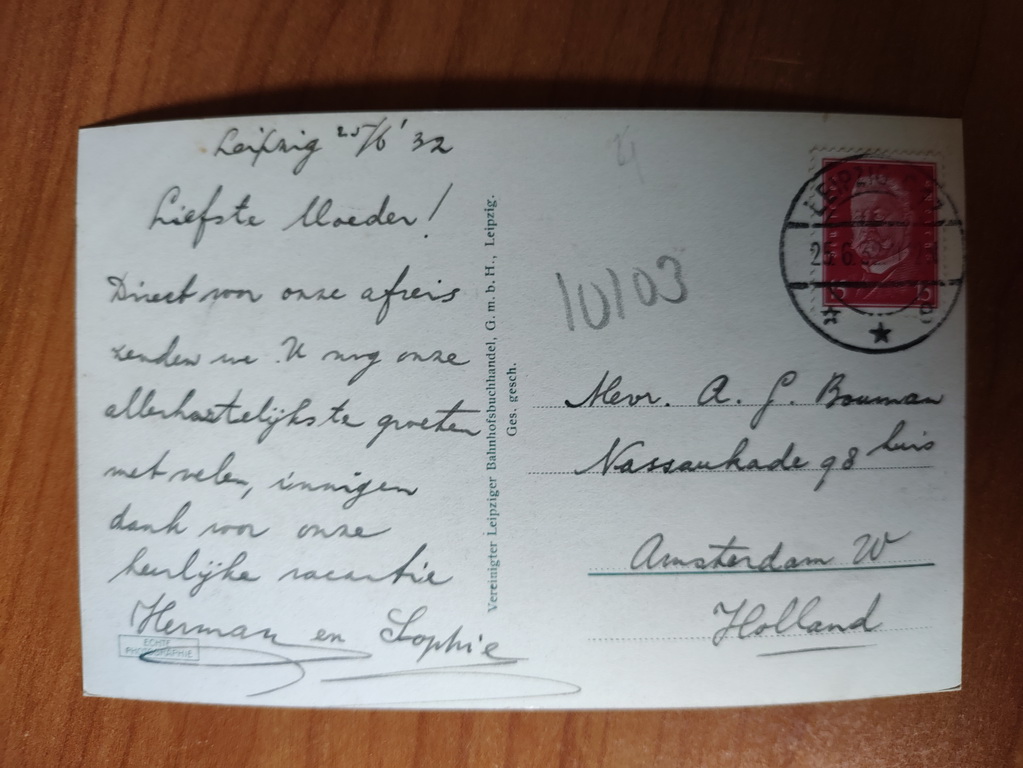 Leipzig 25/6 '32
Liefste Moeder!
Direct voor onze afreis
zenden we U nog onze
allerhartelijkste groeten
met velen, innigen
dank voor onze
heerlijke vacantie
Herman en Sophie
ECHTE
PHOTOGRAPHIE
Vereinigter Leipziger Bahnhofsbuchhandel, G. m. b. H., Leipzig.
Ges. gesch.
10/03
LEIPZIG
25.6.3
15 15
Mevr. A. G. Bouman
Nassaukade 98 huis
Amsterdam W
Holland